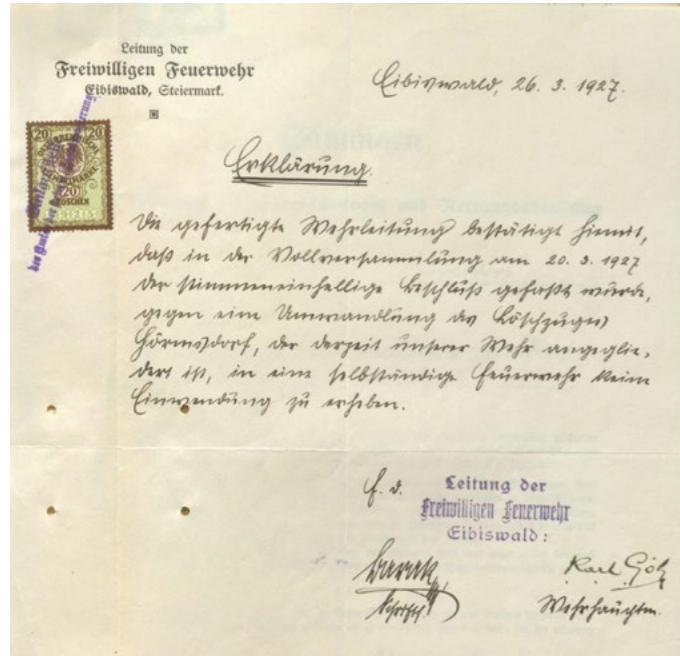 Leitung der
Freiwilligen Feuerwehr
Eibiswald, Steiermark.
Eibiswald, 26. 3. 1927.
20 20
20
GROSCHEN
Erklärung.
Die gefertigte Wehrleitung bestätigt hiemit,
daß in der Vollversammlung am 20. 3. 1927
der stimmeneinhellige Beschluß gefaßt wurde,
gegen eine Umwandlung des Löschzuges
Hörmsdorf, der derzeit unserer Wehr angeglie-
dert ist, in eine selbständige Feuerwehr keine
Einwendung zu erheben.
F. d. Leitung der
Freiwilligen Feuerwehr
Eibiswald:
Karl
Schriftf. Wehrhauptm.